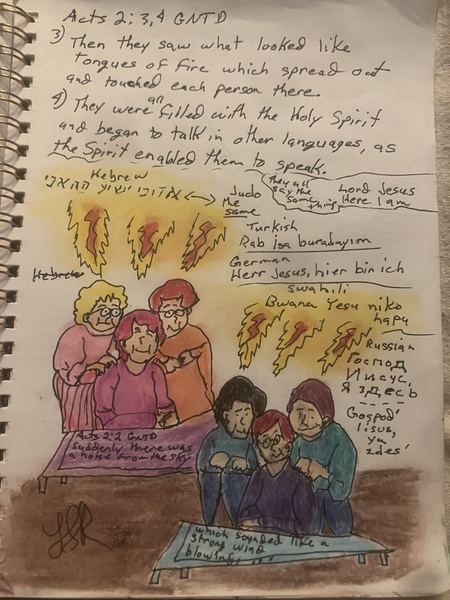 Acts 2:3,4 GNTD
3) Then they saw what looked like
tongues of fire which spread out
and touched each person there.
4) They were all filled with the Holy Spirit
and began to talk in other languages, as
the Spirit enabled them to speak.
Hebrew
Judo
the
same
They all
say the
same
thing
Lord Jesus
Here I am
Turkish
Rab isa buradayım
German
Herr Jesus, hier bin ich
Hebrew
swahili
Bwana Yesu niko
hapu
Russian
Господ
Иисус,
Я здесь
Gospod'
Iisus,
ya
zdes'
Acts 2:2 GNTD
suddenly there was
a noise from the sky
which sounded like a
strong wind
blowing, ...